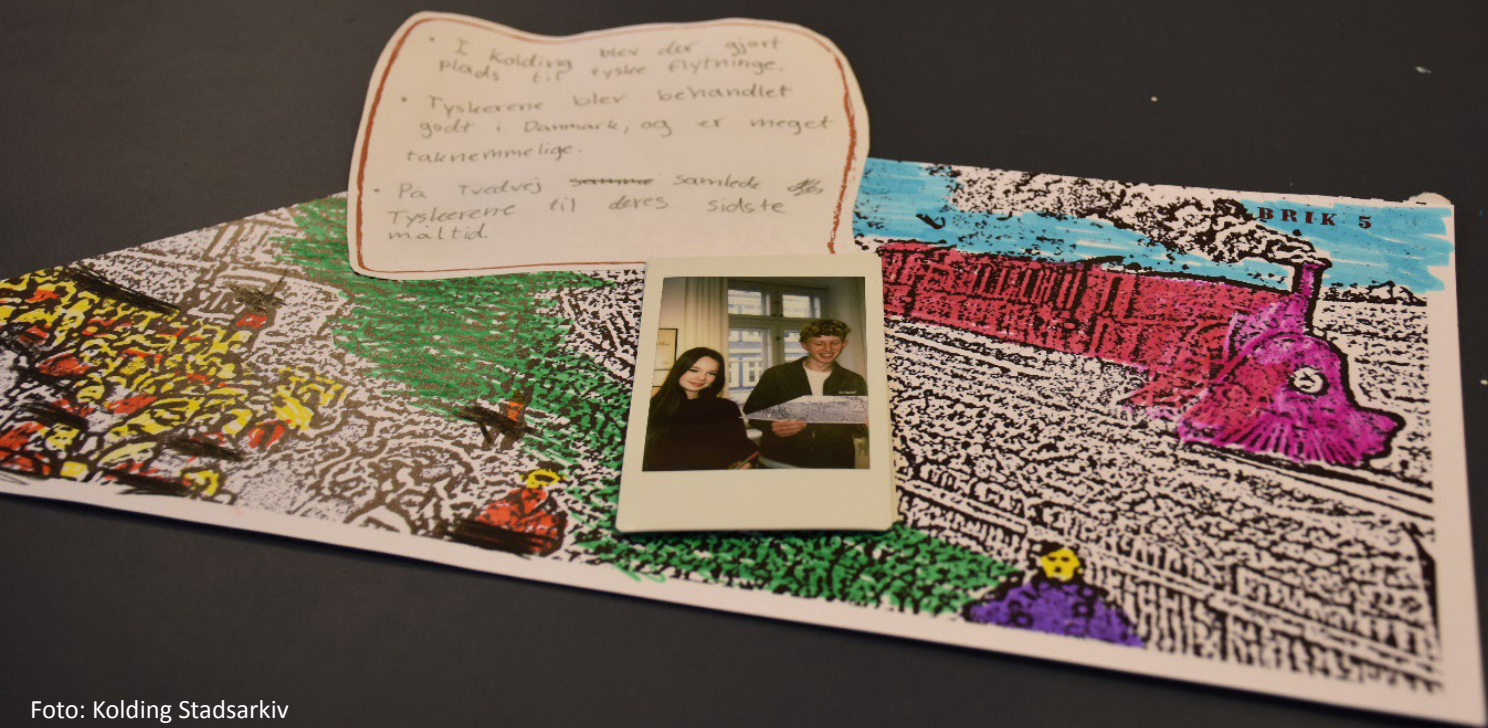 • I Kolding blev der gjort
plads til tyske flytninge.
• Tyskerene blev behandlet
godt i Danmark, og er meget
taknemmelige.
• På Tvedvej samme samlede
Tyskerene til deres sidste
måltid.
BRIK 5
Foto: Kolding Stadsarkiv